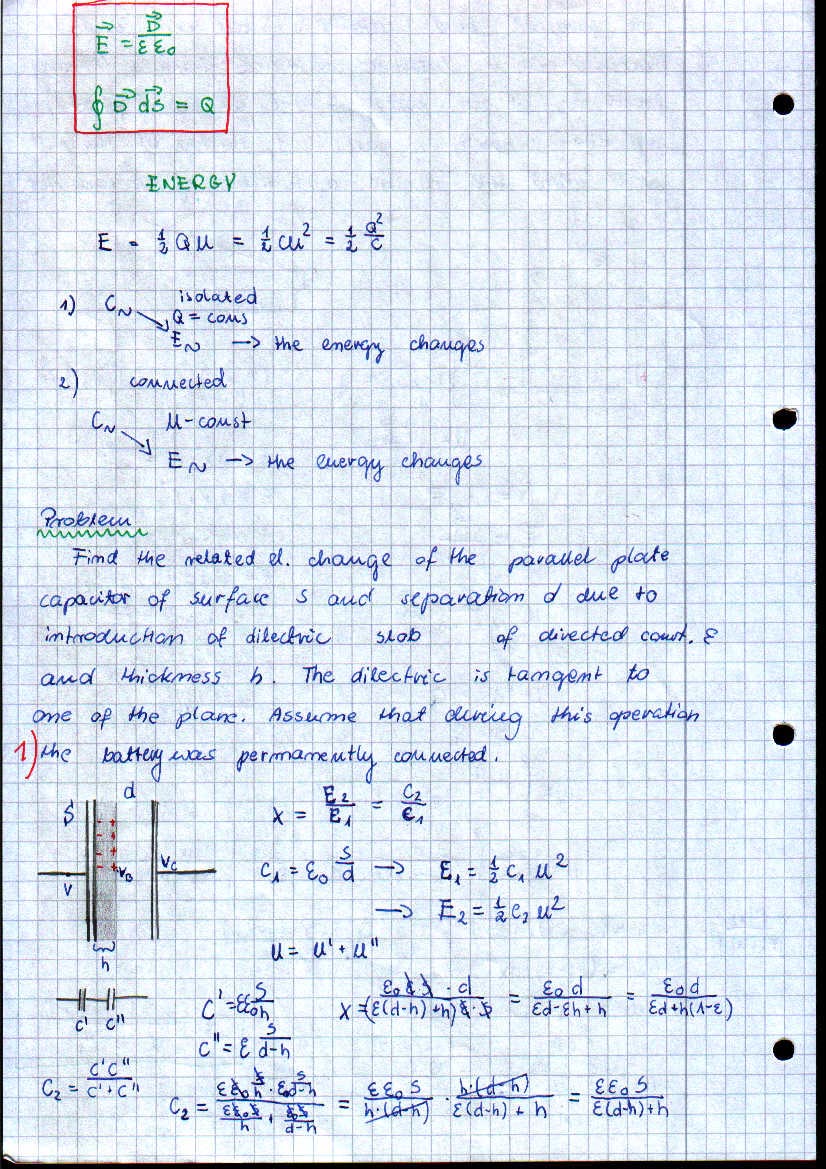 E⃗ = D⃗ / εε₀
∮ D⃗ dS⃗ = Q
ENERGY
E = 1/2 QU = 1/2 CU² = 1/2 Q²/C
1) C~ isolated
Q = cons
E~ → the energy changes
2) connected
C~ U-const
E~ → the energy changes
Problem
Find the related el. change of the parallel plate
capacitor of surface S and separation d due to
introduction of dilectric slab of directed const. ε
and thickness h. The dilectric is tangent to
one of the plane. Assume that during this operation
1) the battery was permamently connected.
S d
V V_B V_C
h
x = E₂/E₁ = C₂/C₁
C₁ = ε₀ S/d → E₁ = 1/2 C₁ U²
→ E₂ = 1/2 C₂ U²
U = U' + U''
C' C''
C' = εε₀ S/h
C'' = ε S/(d-h)
x = (ε₀ε S · d) / ((ε(d-h)+h) ε · S) = ε₀d / (εd-εh+h) = ε₀d / (εd+h(1-ε))
C₂ = C'C'' / (C'+C'')
C₂ = (εε₀ S/h · ε₀ S/(d-h)) / (εε₀S/h + ε₀S/(d-h)) = εε₀S / (h·(d-h)) · h·(d-h) / (ε(d-h)+h) = εε₀S / (ε(d-h)+h)